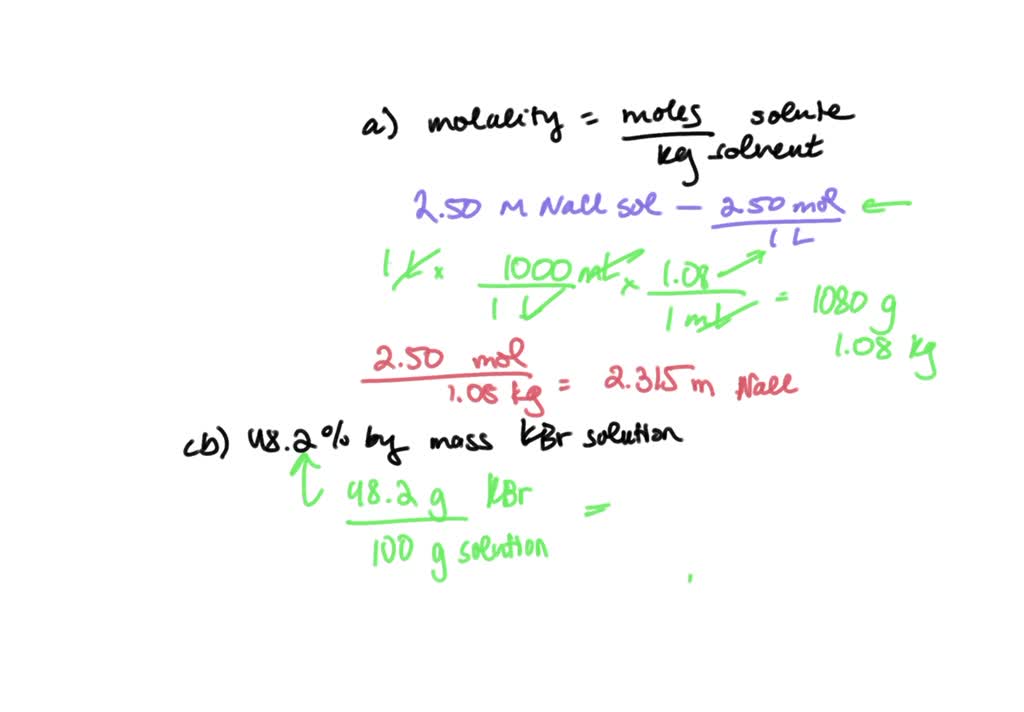 a) molality = moles solute
kg solvent
2.50 M Nacl sol — 2.50 mol
1 L
1 L x 1000 mL x 1.08 = 1080 g
1 L 1 mL
1.08 kg
2.50 mol
1.08 kg = 2.315 m Nacl
cb) 48.2% by mass kBr solution
48.2 g kBr =
100 g solution